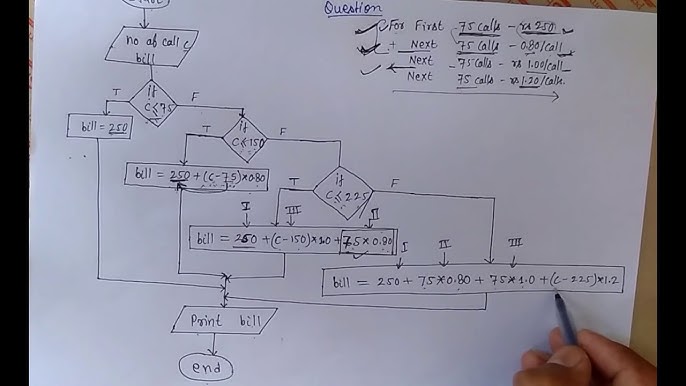 Start
Question
For First 75 Calls - rs 250
+ Next 75 Calls - 0.80/call
Next - 75 Calls - rs 1.00/call
Next 75 Calls - rs 1.20/call.
no of call c
bill
if
C≤75
T
F
bill = 250
if
C≤150
T
F
bill = 250 + (C-75)*0.80
if
C≤225
T
F
I
III
II
bill = 250 + (C-150)*1.0 + 75*0.80
I
II
III
bill = 250 + 75*0.80 + 75*1.0 + (C-225)*1.2
Print bill
end